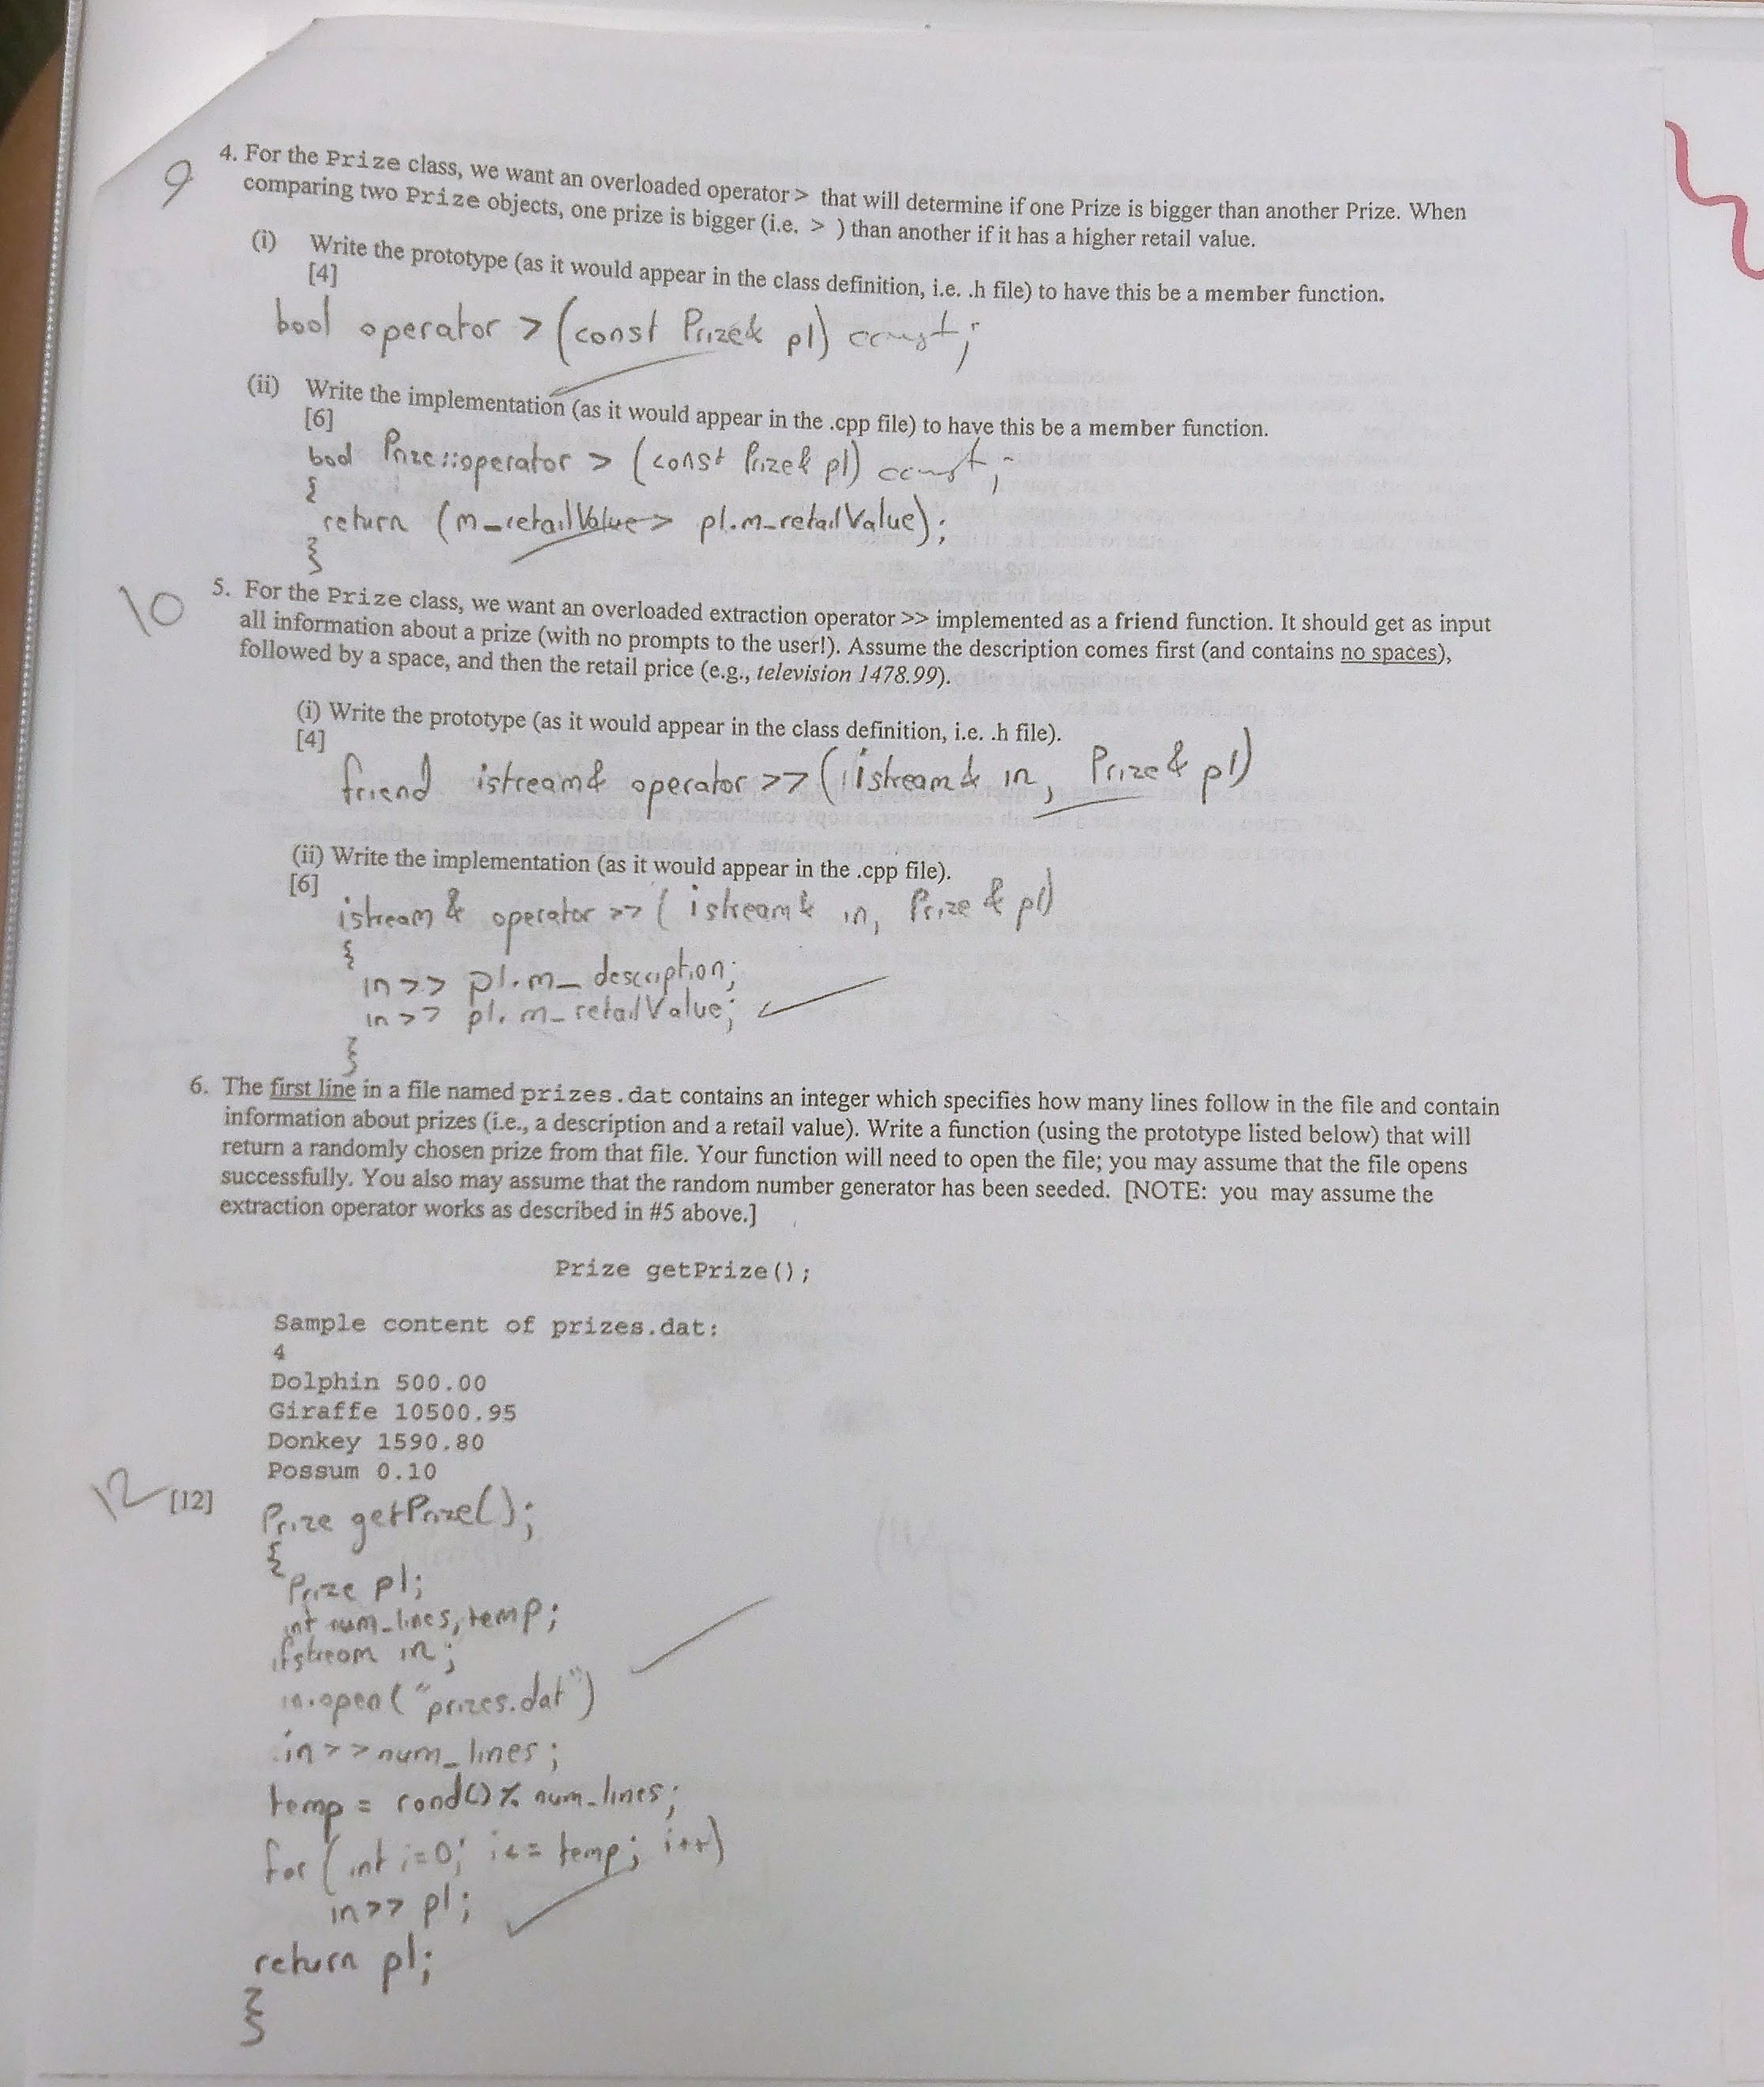 9
4. For the Prize class, we want an overloaded operator > that will determine if one Prize is bigger than another Prize. When
comparing two Prize objects, one prize is bigger (i.e. > ) than another if it has a higher retail value.
(i) Write the prototype (as it would appear in the class definition, i.e. .h file) to have this be a member function.
[4]
bool operator > (const Prize& p1) const;
(ii) Write the implementation (as it would appear in the .cpp file) to have this be a member function.
[6]
bool Prize::operator > (const Prize& p1) const;
{
return (m_retailValue > p1.m_retailValue);
}
10
5. For the Prize class, we want an overloaded extraction operator >> implemented as a friend function. It should get as input
all information about a prize (with no prompts to the user!). Assume the description comes first (and contains no spaces),
followed by a space, and then the retail price (e.g., television 1478.99).
(i) Write the prototype (as it would appear in the class definition, i.e. .h file).
[4]
friend istream& operator >> (istream& in, Prize& p1)
(ii) Write the implementation (as it would appear in the .cpp file).
[6]
istream & operator >> ( istream& in, Prize & p1)
{
in >> p1.m_description;
in >> p1.m_retailValue;
}
6. The first line in a file named prizes.dat contains an integer which specifies how many lines follow in the file and contain
information about prizes (i.e., a description and a retail value). Write a function (using the prototype listed below) that will
return a randomly chosen prize from that file. Your function will need to open the file; you may assume that the file opens
successfully. You also may assume that the random number generator has been seeded. [NOTE: you may assume the
extraction operator works as described in #5 above.]
Prize getPrize();
Sample content of prizes.dat:
4
Dolphin 500.00
Giraffe 10500.95
Donkey 1590.80
Possum 0.10
12 [12]
Prize getPrize();
{
Prize p1;
int num_lines, temp;
ifstream in;
in.open("prizes.dat")
in >> num_lines;
temp = rand() % num_lines;
for (int i=0; i<= temp; i++)
in >> p1;
return p1;
}